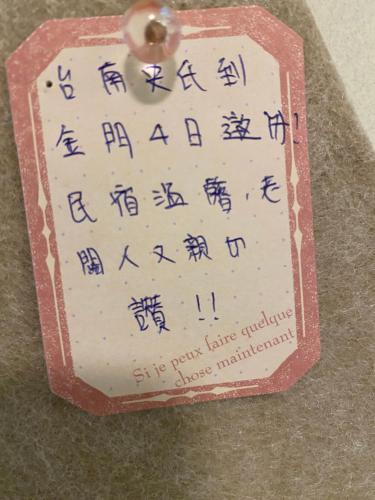 台南 氏到
金門4日遊!
民宿溫馨,老
闆人又親切
讚!!
Si je peux faire quelque
chose maintenant